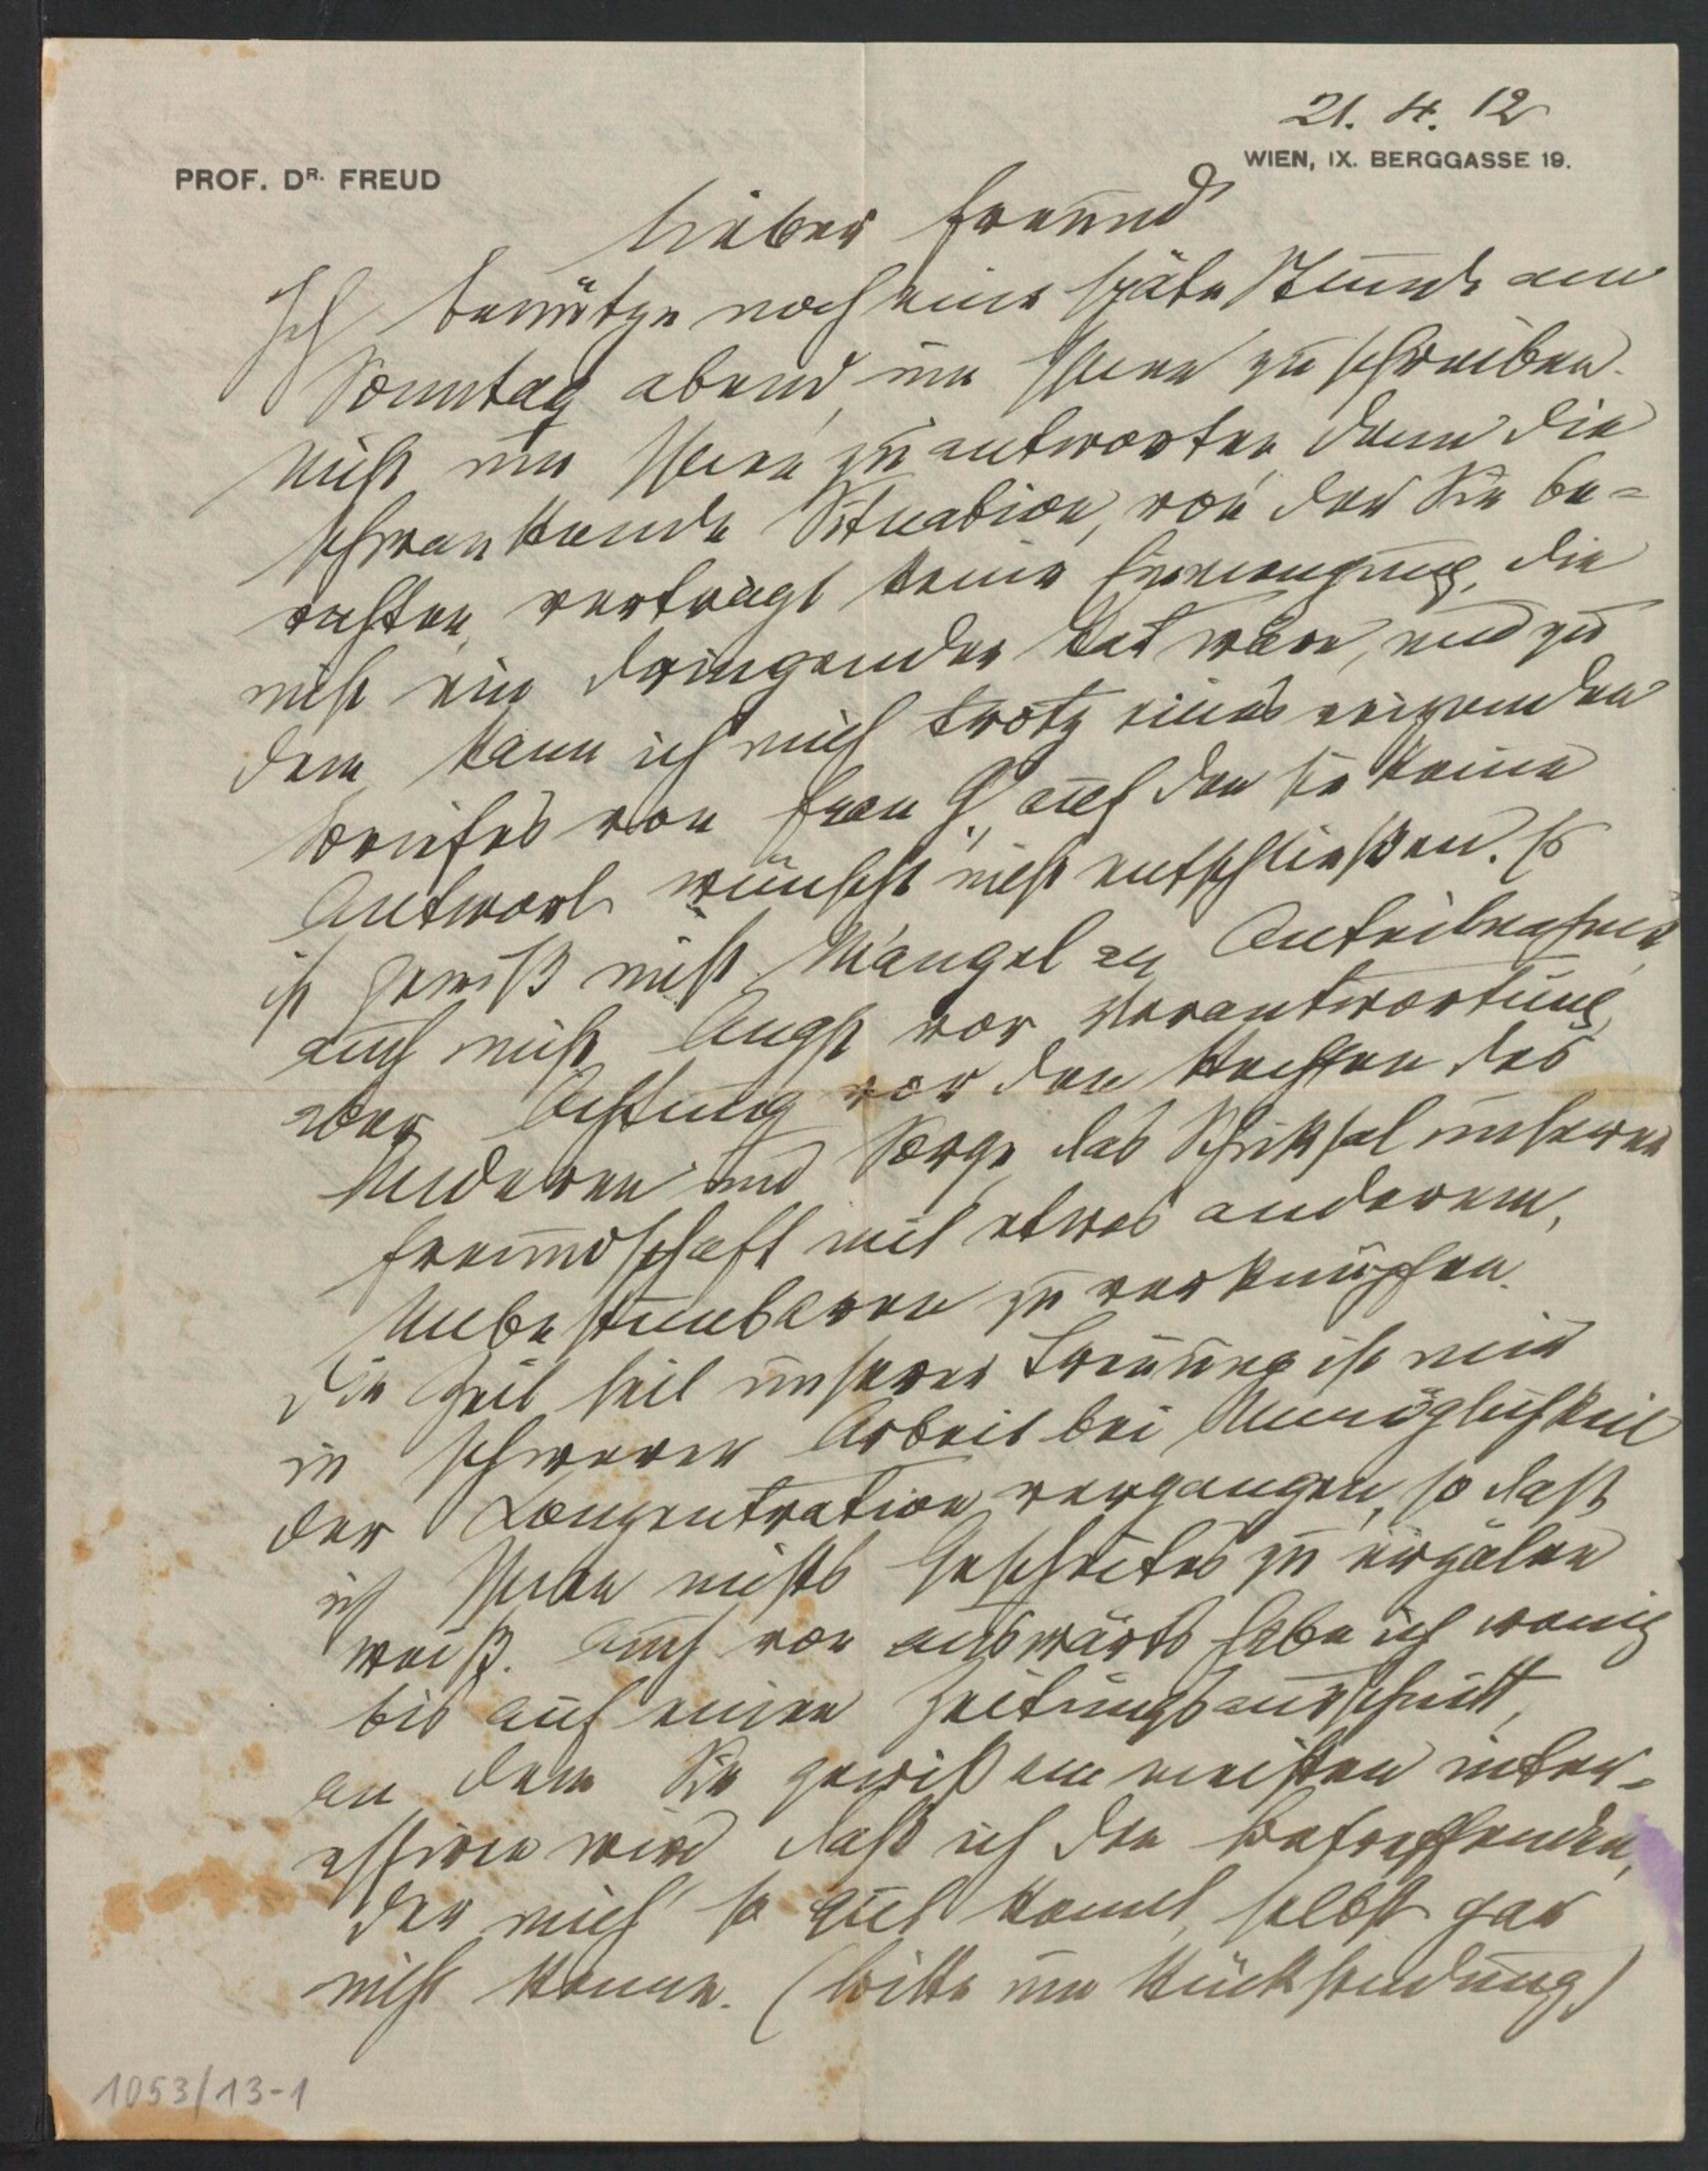 21. 4. 12
WIEN, IX. BERGGASSE 19.
PROF. DR. FREUD
Lieber Freund
Ich benütze noch eine späte Stunde am
Sonntag abend, um Ihnen zu schreiben.
Nicht um Ihnen zu antworten, denn die
schwankende Situation, von der Sie be=
richten, verträgt keine Einmengung, die
nicht ein dringender Rat wäre, und zu
dem kann ich mich trotz eines reizenden
Briefes von Frau G., auf den sie keine
Antwort wünscht, nicht entschließen. Es
ist gewiß nicht Mangel an Anteilnahme,
auch nicht Angst vor Verantwortung,
aber Achtung vor den Rechten des
Anderen und Sorge, das Schicksal unserer
Freundschaft mit etwas anderem,
Unbestimmbaren zu verknüpfen.
Die Zeit seit unserer Trennung ist mir
in schwerer Arbeit bei Unmöglichkeit
der Konzentration vergangen, so daß
ich Ihnen nichts Gescheites zu erzälen
weiß. Auch von auswärts habe ich wenig
bis auf einen Zeitungsausschnitt,
an dem Sie gewiß am meisten inter=
essiren wird, daß ich den Betreffenden,
der mich so gut kennt, selbst gar
nicht kenne. (Bitte um Rücksendung)
1053/13-1